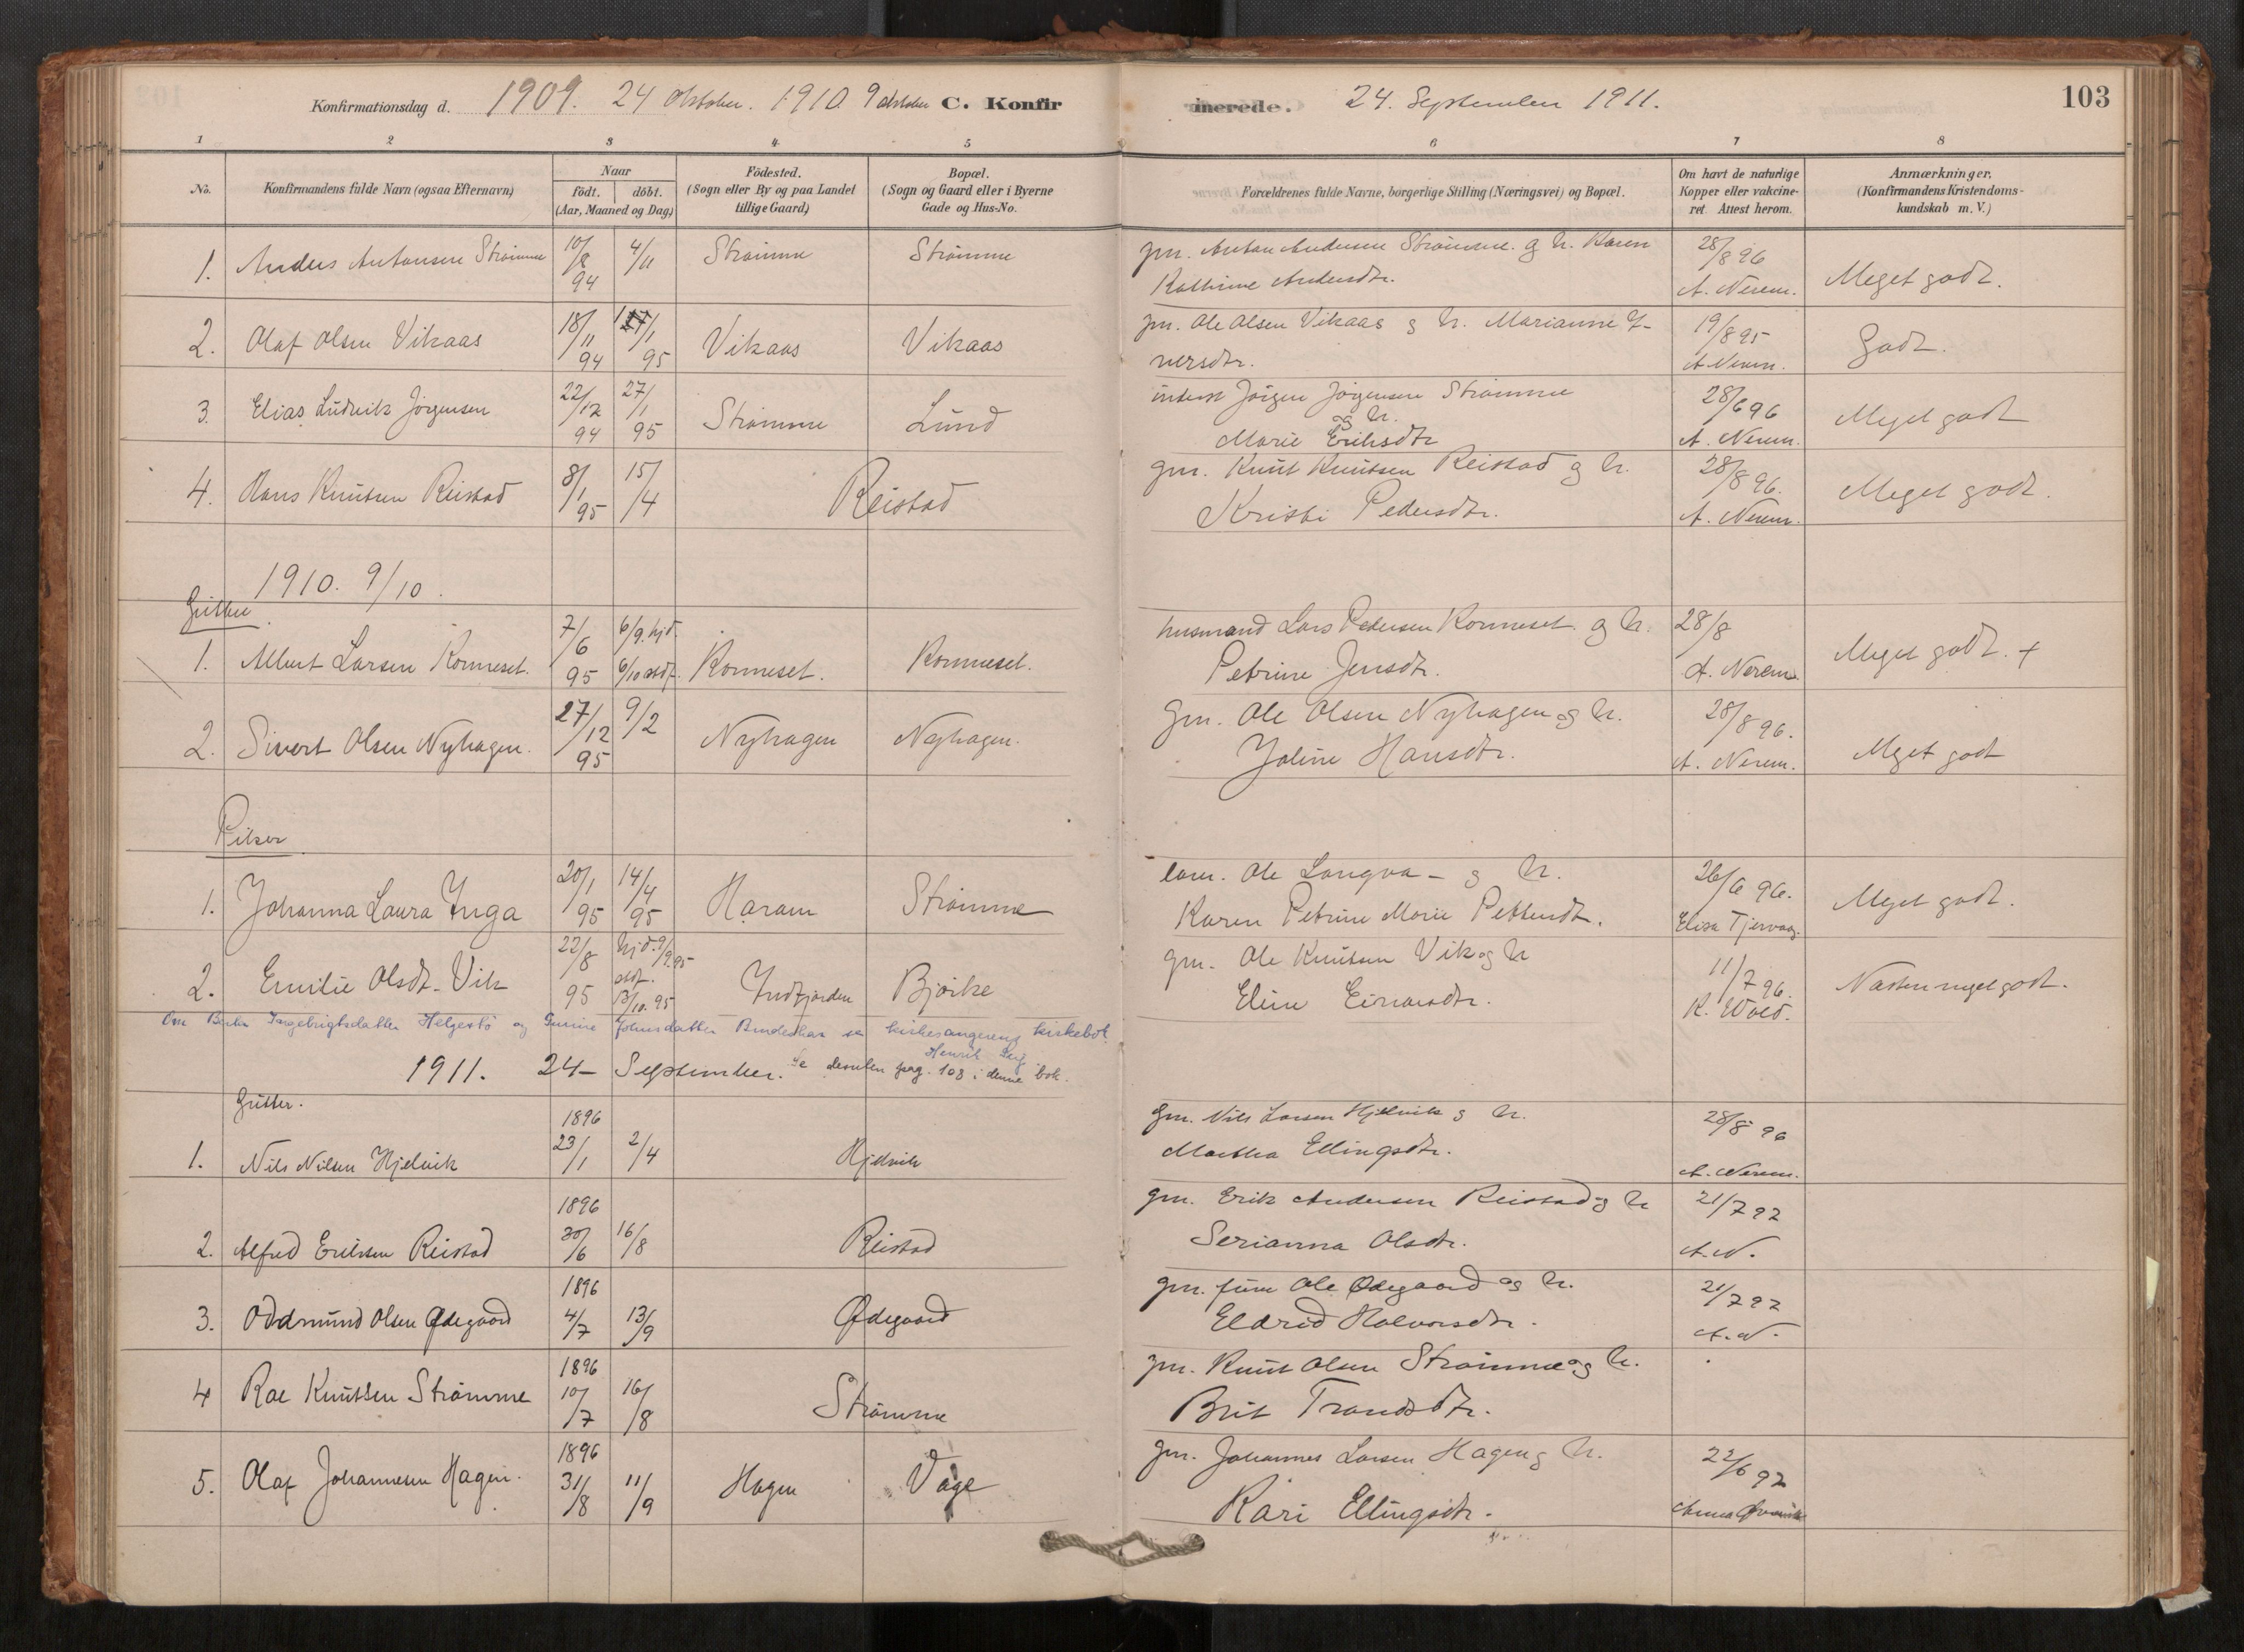 Konfirmationsdag d. 1909. 24 Oktober. 1910. 9 oktober C. Konfirmerede. 24. September 1911. 103
1 2 3 4 5 6 7 8
No.
Konfirmandens fulde Navn (ogsaa Efternavn)
Naar
födt. döbt.
(Aar, Maaned og Dag)
Födested.
(Sogn eller By og paa Landet
tillige Gaard)
Bopæl.
(Sogn og Gaard eller i Byerne
Gade og Hus-No.
Forældrenes fulde Navne, borgerlige Stilling (Næringsvei) og Bopæl.
Om havt de naturlige
Kopper eller vakcine-
ret. Attest herom.
Anmærkninger,
(Konfirmandens Kristendoms-
kundskab m. V.)
1. Anders Antonsen Strømme 10/8 94 4/11 Strømme Strømme gm. Anton Andersen Strømme. og h. Karen
Kathrine Andersdtr. 28/8 96 A. Nerem. Meget godt.
2. Olaf Olsen Vikaas 18/11 94 7/1 95 Vikaas Vikaas gm. Ole Olsen Vikaas og h. Marianne I-
versdtr. 19/8 95 A. Nerem. Godt.
3. Elias Ludvik Jørgensen 22/12 94 27/1 95 Strømme Lund inderst Jørgen Jørgensen Strømme
og h.
Marie Eriksdtr 28/6 96 A. Nerem. Meget godt
4. Hans Knutsen Reistad 8/1 95 15/4 Reistad gm. Knut Knutsen Reistad og h.
Kristi Pedersdtr. 28/8 96. A. Nerem. Meget godt.
1910. 9/10.
Gutter
1. Albert Larsen Konneset. 7/6 95 6/9. hjd. 6/10 stdf. Konneset. Konneset. husmand Lars Pedersen Konneset og h.
Petrine Jensdtr. 28/8 A. Nerem. Meget godt. +
2. Sivert Olsen Nyhagen. 27/12 95 9/2 Nyhagen Nyhagen. Gm. Ole Olsen Nyhagen og h.
Joline Hansdtr. 28/8 96. A. Nerem. Meget godt
Piker
1. Johanna Laura Inga 20/1 95 14/4 95 Haram Strømme Ole Longva - og h.
Karen Petrine Marie Pettersdt. 26/6 96. Elisa Tjervaag. Meget godt.
2. Emilie Olsdt. Vik 22/8 95 hjd. 9/9.95 stdf. 13/10.95 Indfjorden Bjørke gm. Ole Knutsen Vik og h
Eline Einarsdtr. 11/7 96. K. Wold. Næsten meget godt.
Om Berte Ingebrigtsdatter Helgestø og Gurine Johnsdatter se kirkesangerens kirkebok
Henrik
1911. 24- September. Se desuten pag. 108 i denne bok.
Gutter.
1. Nils Nilsen Hjelvik 1896 23/1 2/4 Hjelvik Gm. Nils Larsen Hjelvik og h.
Martha Ellingsdtr. 28/8 96 A. Nerem.
2. Alfred Eriksen Reistad 1896 30/6 16/8 Reistad gm. Erik Andersen Reistad og h
Serianna Olsdtr. 21/7 97 A. N.
3. Oddmund Olsen Ødegaard 1896 4/7 13/9 Ødegaard gm. Ole Ødegaard og h.
Eldrid Halvorsdtr. 21/7 97 A. N.
4 Roe Knutsen Strømme 1896 10/7 16/8 Strømme gm. Knut Olsen Strømme og h.
Brit Trondsdtr.
5. Olaf Johannesen Hagen. 1896 31/8 11/9 Hagen Våge gm. Johannes Larsen Hagen og h.
Kari Ellingsdtr. 22/6 97